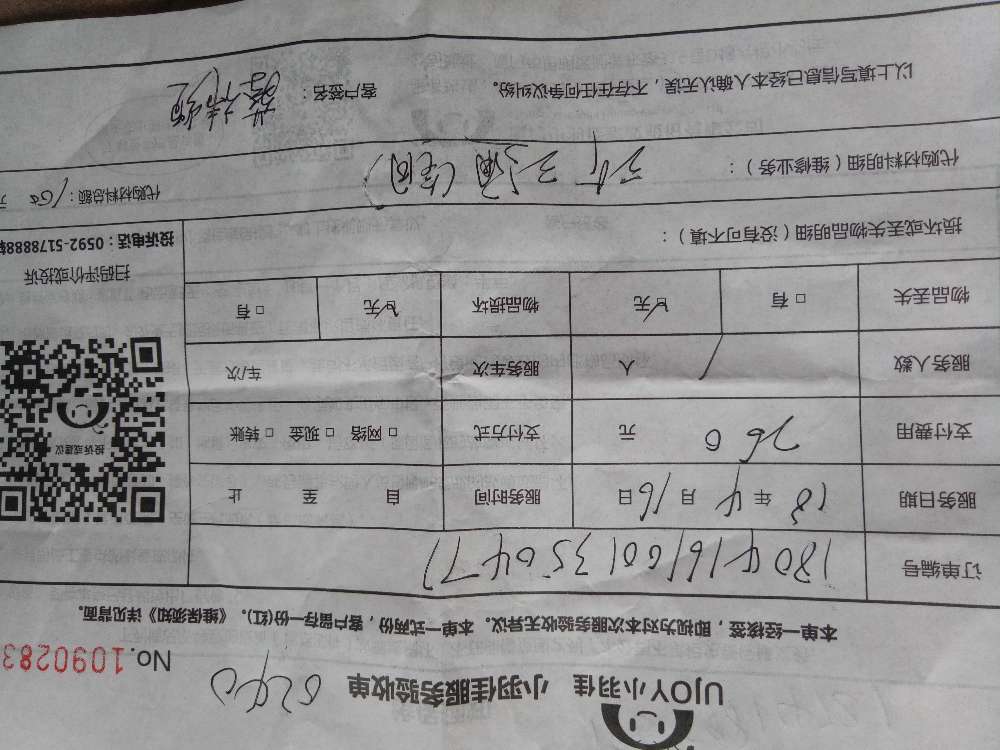 UJOY小羽佳 小羽佳服务验收单 0240
No.1090283
本单一经接签，即视为对本次服务验收无异议。本单一式两份，客户留存一份(红)。《维保须知》详见背面。
订单编号 180416160135047
服务日期 18年4月16日 服务时间 自 至 止
支付费用 260 元 支付方式 □网络 □现金 □转账
服务人数 1 人 服务车次 车/次
物品丢失 □有 ☑无 物品损坏 ☑无 □有
投诉或建议
扫码评价或投诉
投诉电话：0592-5178888转
损坏或丢失物品明细（没有可不填）：
代购材料明细（维修业务）：
代购材料总额： 元
以上填写信息已经本人确认无误，不存在任何争议纠纷。 客户签名：